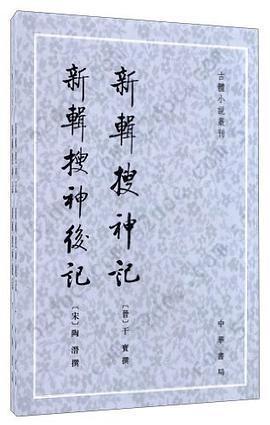 古體小說叢刊
新輯搜神記
〔晉〕干寶撰
新輯搜神後記
〔宋〕陶潛撰
中華書局